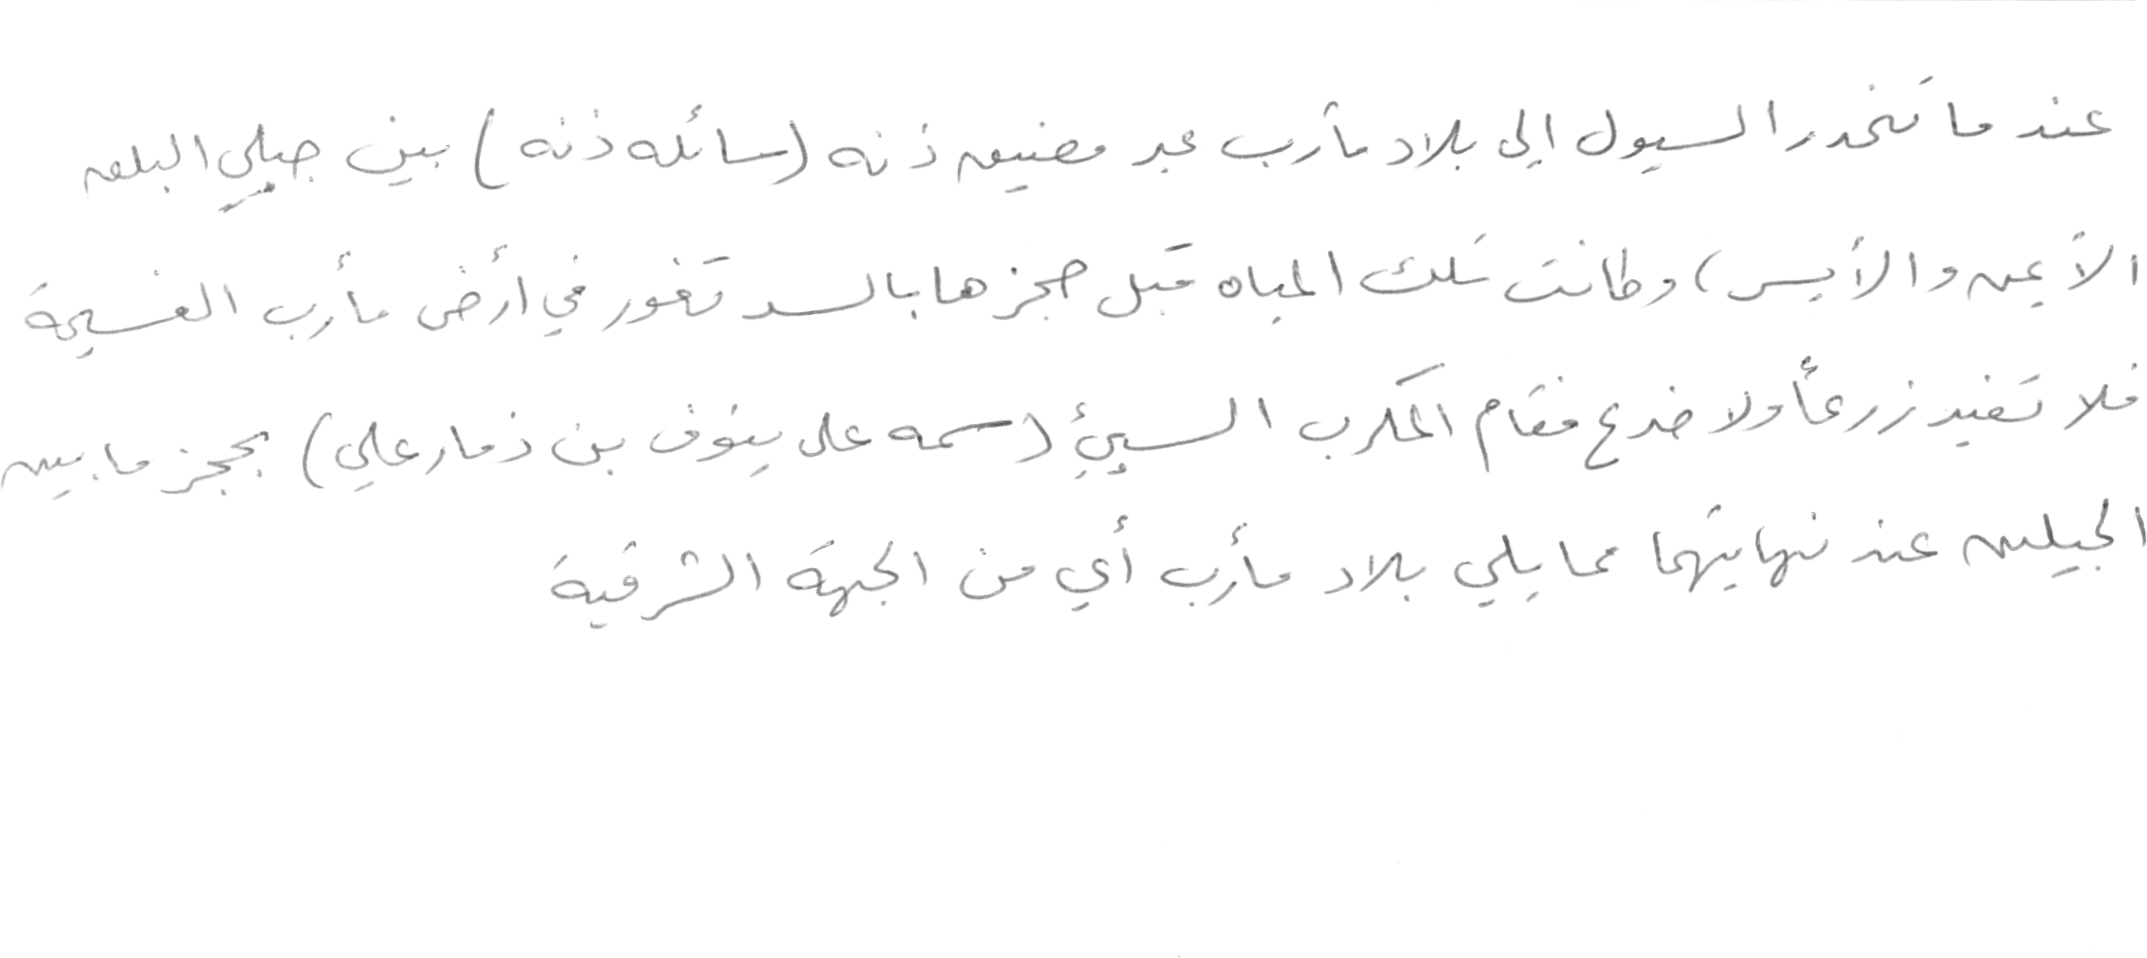 عندما تنحدر السيول إلى بلاد مأرب عبر مضيق ذنه (سائله ذنه) بين جبلي البلق
الأيمن والأيسر، وكانت تلك المياه قبل حجزها بالسد تغور في أرض مأرب الفسيحة
فلا تفيد زرعاً ولا ضرع فقام المكرب السبئ (سمه على ينوف بن ذمار علي) بحجز ما بين
الجبلين عند نهايتهما مما يلي بلاد مأرب أي من الجهة الشرقية